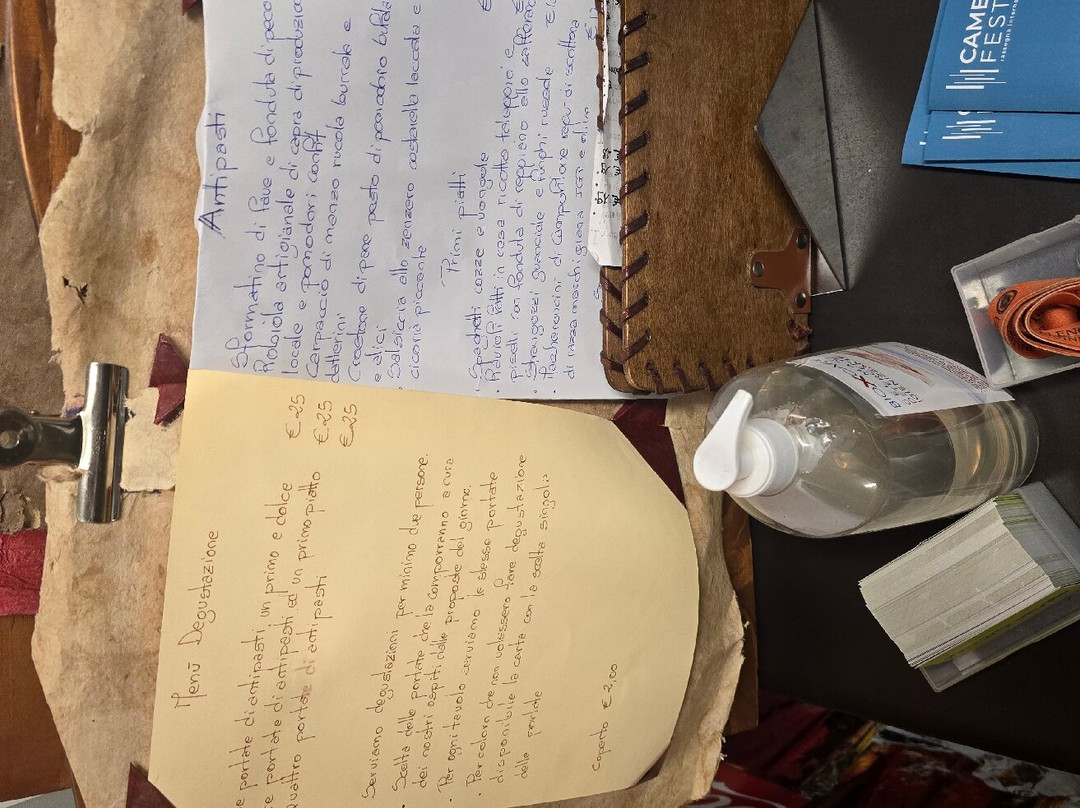 Menù Degustazione
e portate di antipasti, un primo e dolce € 25
e portate di antipasti ed un primo piatto € 25
quattro portate di antipasti € 25
Serviamo degustazioni per minimo due persone.
• Scelta delle portate che la comporranno a cura
dei nostri ospiti dalle proposte del giorno.
• Per ogni tavolo serviamo le stesse portate
• Per coloro che non volessero fare degustazione
disponibile la carta con la scelta singola
delle portate
Coperto € 2,00
Antipasti
Sformatino di fave e fonduta di peco
Robiola artigianale di capra di produzio
locale e pomodori confit
Carpaccio di manzo rucola burrata e
datterini
Crostone di pane pesto di pomodoro bufala
e alici
Salsiccia allo zenzero costatella laccata e
cicoria piccante
Primi piatti
• Spaghetti cozze e vongole
• Ravioli fatti in casa ricotta taleggio e
piselli con fonduta di reggiano allo zafferano
Strangozzi guanciale e funghi russola
di razza marchigiana IGP e
CAME
FEST
rassegna interna
BIO